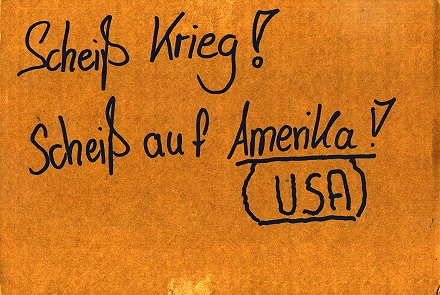 Scheiß Krieg!
Scheiß auf Amerika!
(USA)